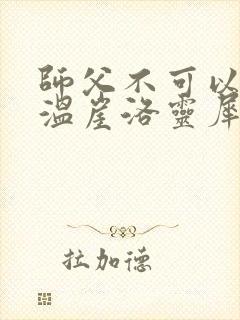 師父不可以
溫崖洛靈犀
拉加德